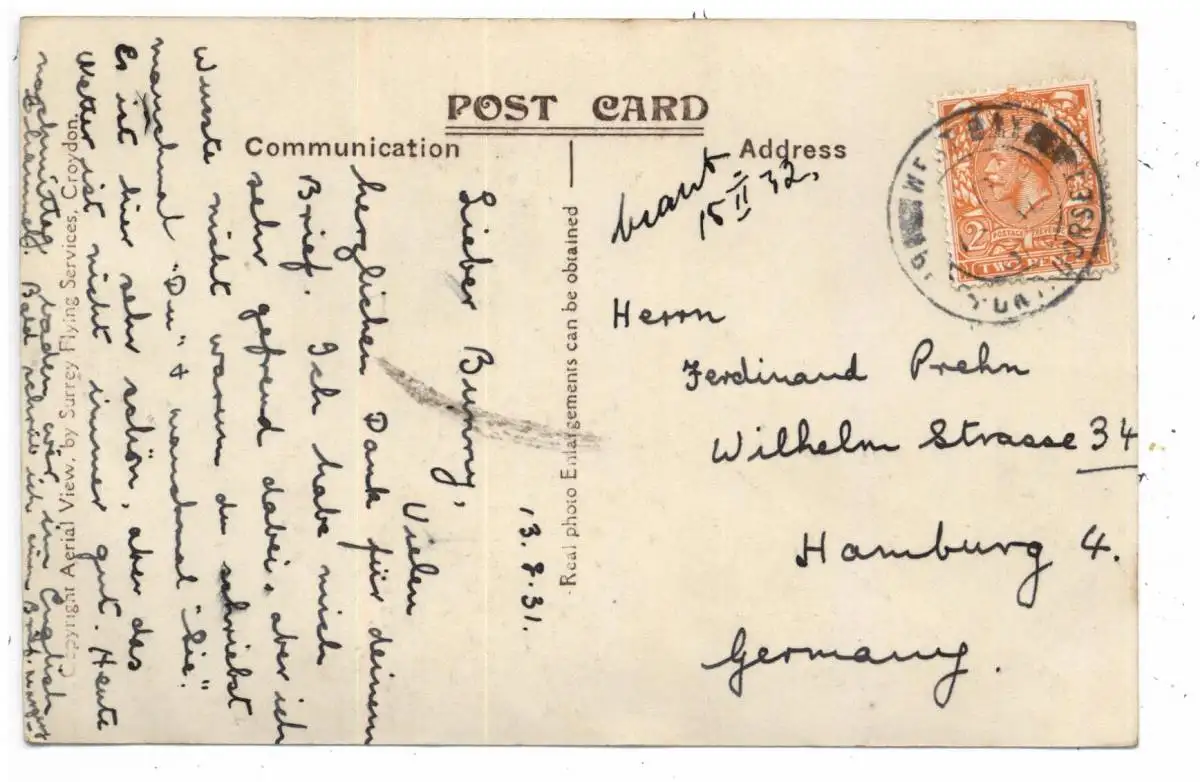 POST CARD
Communication
Address
beant
15 II 32.
Herrn
Ferdinand Prehn
Wilhelm Strasse 34
Hamburg 4.
Germany.
TWO PENCE
2
13.8.31.
Lieber Bunny,
Vielen
herzlichen Dank für deinen
Brief. Ich habe mich
sehr gefreud dabei, aber ich
wusste nicht warum du schriebst
manchmal "Du" + manchmal "Sie".
Es ist hier sehr schön, aber das
Wetter ist nicht immer gut. Heute
nachmittag baden wir im English
Channel. Bald schreib ich einen Brief.
Real photo Enlargements can be obtained
Copyright Aerial View, by Surrey Flying Services, Croydon.